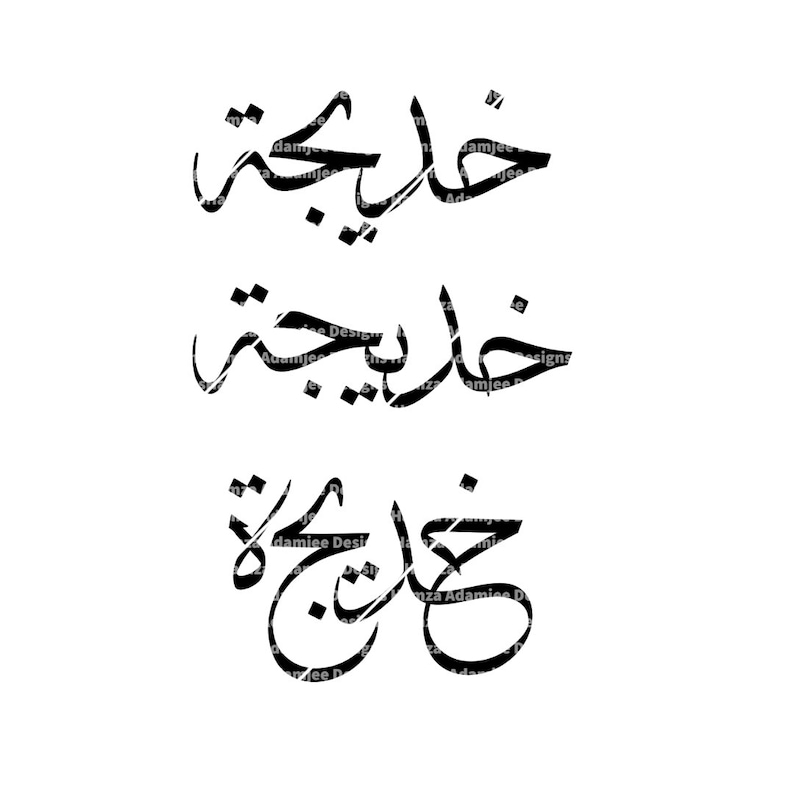 خديجة
خديجة
خديجة
Hamza Adamjee Designs